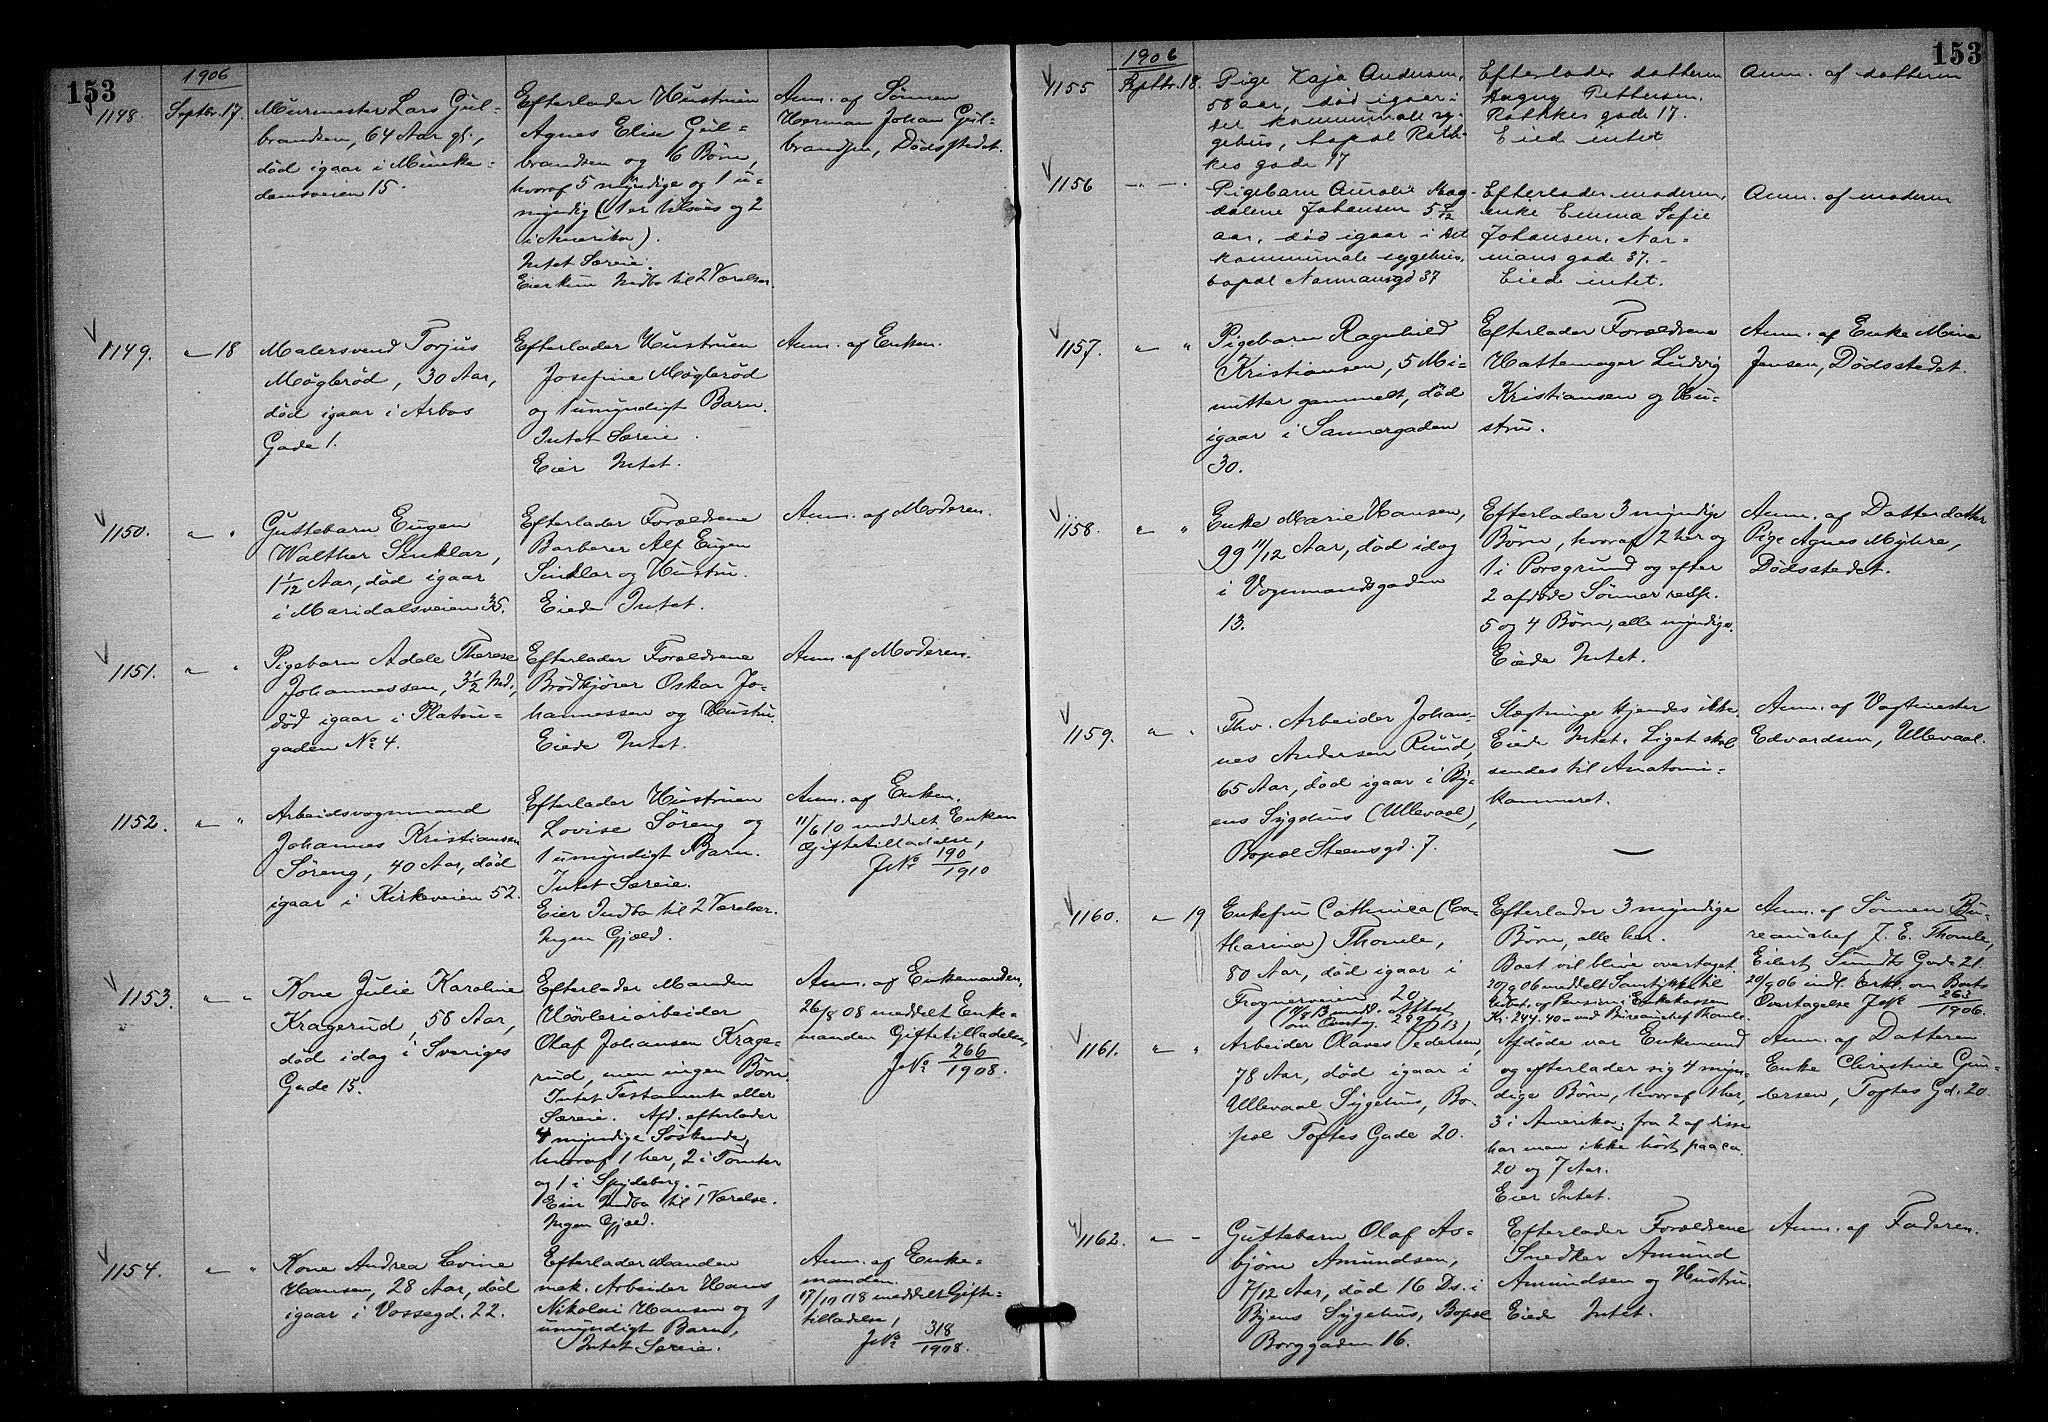 153
1906
1148.
Septbr. 17.
Murmester Lars Gul-
brandsen, 64 Aar gl.,
død igaar i Munke-
damsveien 15.
Efterlader Hustruen
Agnes Elise Gul-
brandsen og 6 Børn,
hvoraf 5 myndige og 1 u-
myndig (1 er tilsøes og 2
i Amerika).
Intet Særeie.
Eier kun Indbo til 2 Værelser.
Anm. af Sønnen
Herman Johan Gul-
brandsen, Dødsstedet.
1149.
" 18
Malersvend Torjus
Møglerød, 30 Aar,
død igaar i Arbos
Gade 1.
Efterlader Hustruen
Josefine Møglerød
og 1 umyndigt Barn.
Intet Særeie.
Eier Intet.
Anm. af Enken.
1150.
" "
Guttebarn Eugen
Walther Sinklar,
1 1/12 Aar, død igaar
i Maridalsveien 35.
Efterlader Forældrene
Barberer Alf Eugen
Sinklar og Hustru.
Eiede Intet.
Anm. af Moderen.
1151.
" "
Pigebarn Adele Therese
Johannessen, 3½ Md.,
død igaar i Platou-
gaden No. 4.
Efterlader Forældrene
Brødkjører Oskar Jo-
hannessen og Hustru.
Eiede Intet.
Anm. af Moderen.
1152.
" "
Arbeidsvognmand
Johannes Kristiansen
Søreng, 40 Aar, død
igaar i Kirkeveien 52.
Efterlader Hustruen
Lovise Søreng og
1 umyndigt Barn.
Intet Særeie.
Eier Indbo til 2 Værelser.
Ingen Gjæld.
Anm. af Enken.
11/6 10 meddelt Enken
Giftetilladelse,
J.No. 190/1910
1153.
" "
Kone Julie Karoline
Kragerud, 58 Aar,
død idag i Sveriges
Gade 15.
Efterlader Manden
Høvleriarbeider
Olaf Johansen Krage-
rud, men ingen Børn.
Intet Testamente eller
Særeie. Afd. efterlader
4 myndige Søskende,
hvoraf 1 her, 2 i Tomter
og 1 i Spydeberg.-
Eier Indbo til 1 Værelse.
Ingen Gjæld.
Anm. af Enkemanden.
26/8 08 meddelt Enke-
manden Giftetilladelse,
J.No. 266/1908.
1154.
" "
Kone Andrea Lovine
Hansen, 28 Aar, død
igaar i Vossegd. 22.
Efterlader Manden
mek. Arbeider Hans
Nikolai Hansen og 1
umyndigt Barn,
Intet Særeie.
Anm. af Enke-
manden.
17/10 08 meddelt Gifte-
tilladelse,
J.No. 318/1908.
153
1906
1155
Septbr. 18.
Pige Kaja Andersen,
58 aar, død igaar i
det kommunale sy-
gehus, bopæl Rath-
kes gade 17
Efterlader datteren
Dagny Pettersen.
Rathkes gade 17.
Eiede intet
Anm. af datteren
1156
-"-
Pigebarn Aurolie Mag-
dalene Johansen 5 5/12
aar, død igaar i Det
kommunale sygehus,
bopæl Normansgd 37
Efterlader moderen,
enke Emma Sofie
Johansen, Nor-
mans gade 37.-
Eiede intet.
Anm. af moderen
1157.
" "
Pigebarn Ragnhild
Kristiansen, 5 Mi-
nutter gammelt, død
igaar i Sannergaden
30.
Efterlader Forældrene
Hattemager Ludvig
Kristiansen og Hu-
stru.
Anm. af Enke Mina
Jensen, Dødsstedet.
1158.
" "
Enke Marie Hansen,
99 11/12 Aar, død idag
i Vognmandsgaden
13.
Efterlader 3 myndige
Børn, hvoraf 2 her og
1 i Porsgrund og efter
2 afdøde Sønner resp.
5 og 4 Børn, alle myndige.
Eiede Intet.
Anm. af Datterdatter
Pige Agnes Myhre,
Dødsstedet.
1159.
" "
Fhv. Arbeider Johan-
nes Andersen Ruud,
65 Aar, død igaar i By-
ens Sygehus (Ullevaal),
Bopæl Steensgd. 7.
Slægtninge kjendes ikke.
Eiede Intet. Liget skal
sendes til Anatomi-
kammeret.
Anm. af Vagtmester
Edvardsen, Ullevaal.
1160.
" 19
Enkefru Cathinca (Ca-
tharina) Thomle,
80 Aar, død igaar i
Frognerveien 20
Efterlader 3 myndige
Børn, alle her.
Boet vil blive overtaget.
20/9 06 meddelt Samtykke til
Udbet. af Pension i Enkekassen
Kr. 244.40 ved Bureauchef Thomle.
Anm. af Sønnen Bu-
reauchef J. E. Thomle,
Eilert Sundts Gade 21
20/9 06 indl. Erkl. om Boets
Overtagelse J.No. 263/1906.
1161.
" "
Arbeider Olaves Pedersen,
78 Aar, død igaar i
Ullevaal Sygehus, Bo-
pæl Toftes Gade 20.
Afdøde var Enkemand
og efterlader sig 4 myn-
dige Børn, hvoraf 1 her,
3 i Amerika; fra 2 af disse
har man ikke hørt paa ca.
20 og 7 Aar.
Eier Intet.
Anm. af Datteren
Enke Christine Gun-
dersen, Toftes Gd. 20.
1162.
" -
Guttebarn Olaf As-
bjørn Amundsen,
7/12 Aar, død 16 Ds. i
Byens Sygehus, Bopæl
Borggaden 16.
Efterlader Forældrene
Snedker Amund
Amundsen og Hustru.
Eiede Intet.
Anm. af Faderen.